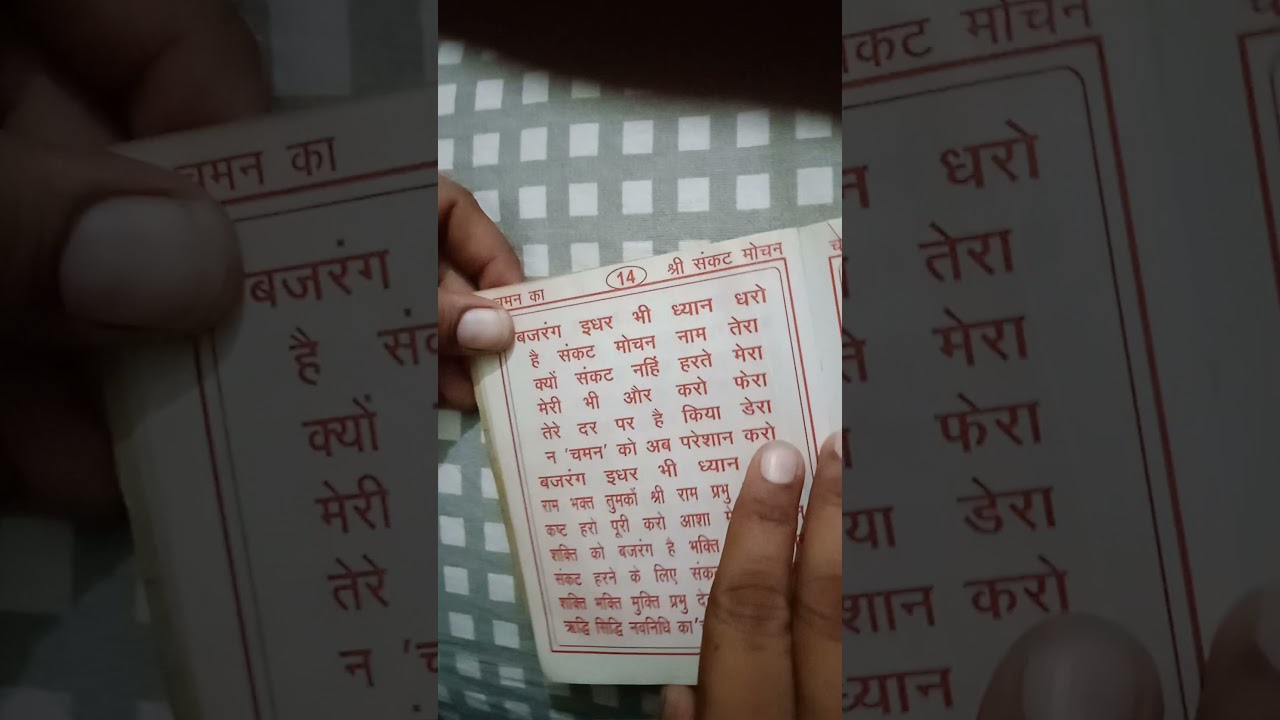 चमन का 14 श्री संकट मोचन
बजरंग इधर भी ध्यान धरो
है संकट मोचन नाम तेरा
क्यों संकट नहिं हरते मेरा
मेरी भी और करो फेरा
तेरे दर पर है किया डेरा
न 'चमन' को अब परेशान करो
बजरंग इधर भी ध्यान
राम भक्त तुमकों श्री राम प्रभु
कष्ट हरो पूरी करो आशा
शक्ति को बजरंग है भक्ति
संकट हरने के लिए
शक्ति भक्ति मुक्ति प्रभु
ऋद्धि सिद्धि नवनिधि का